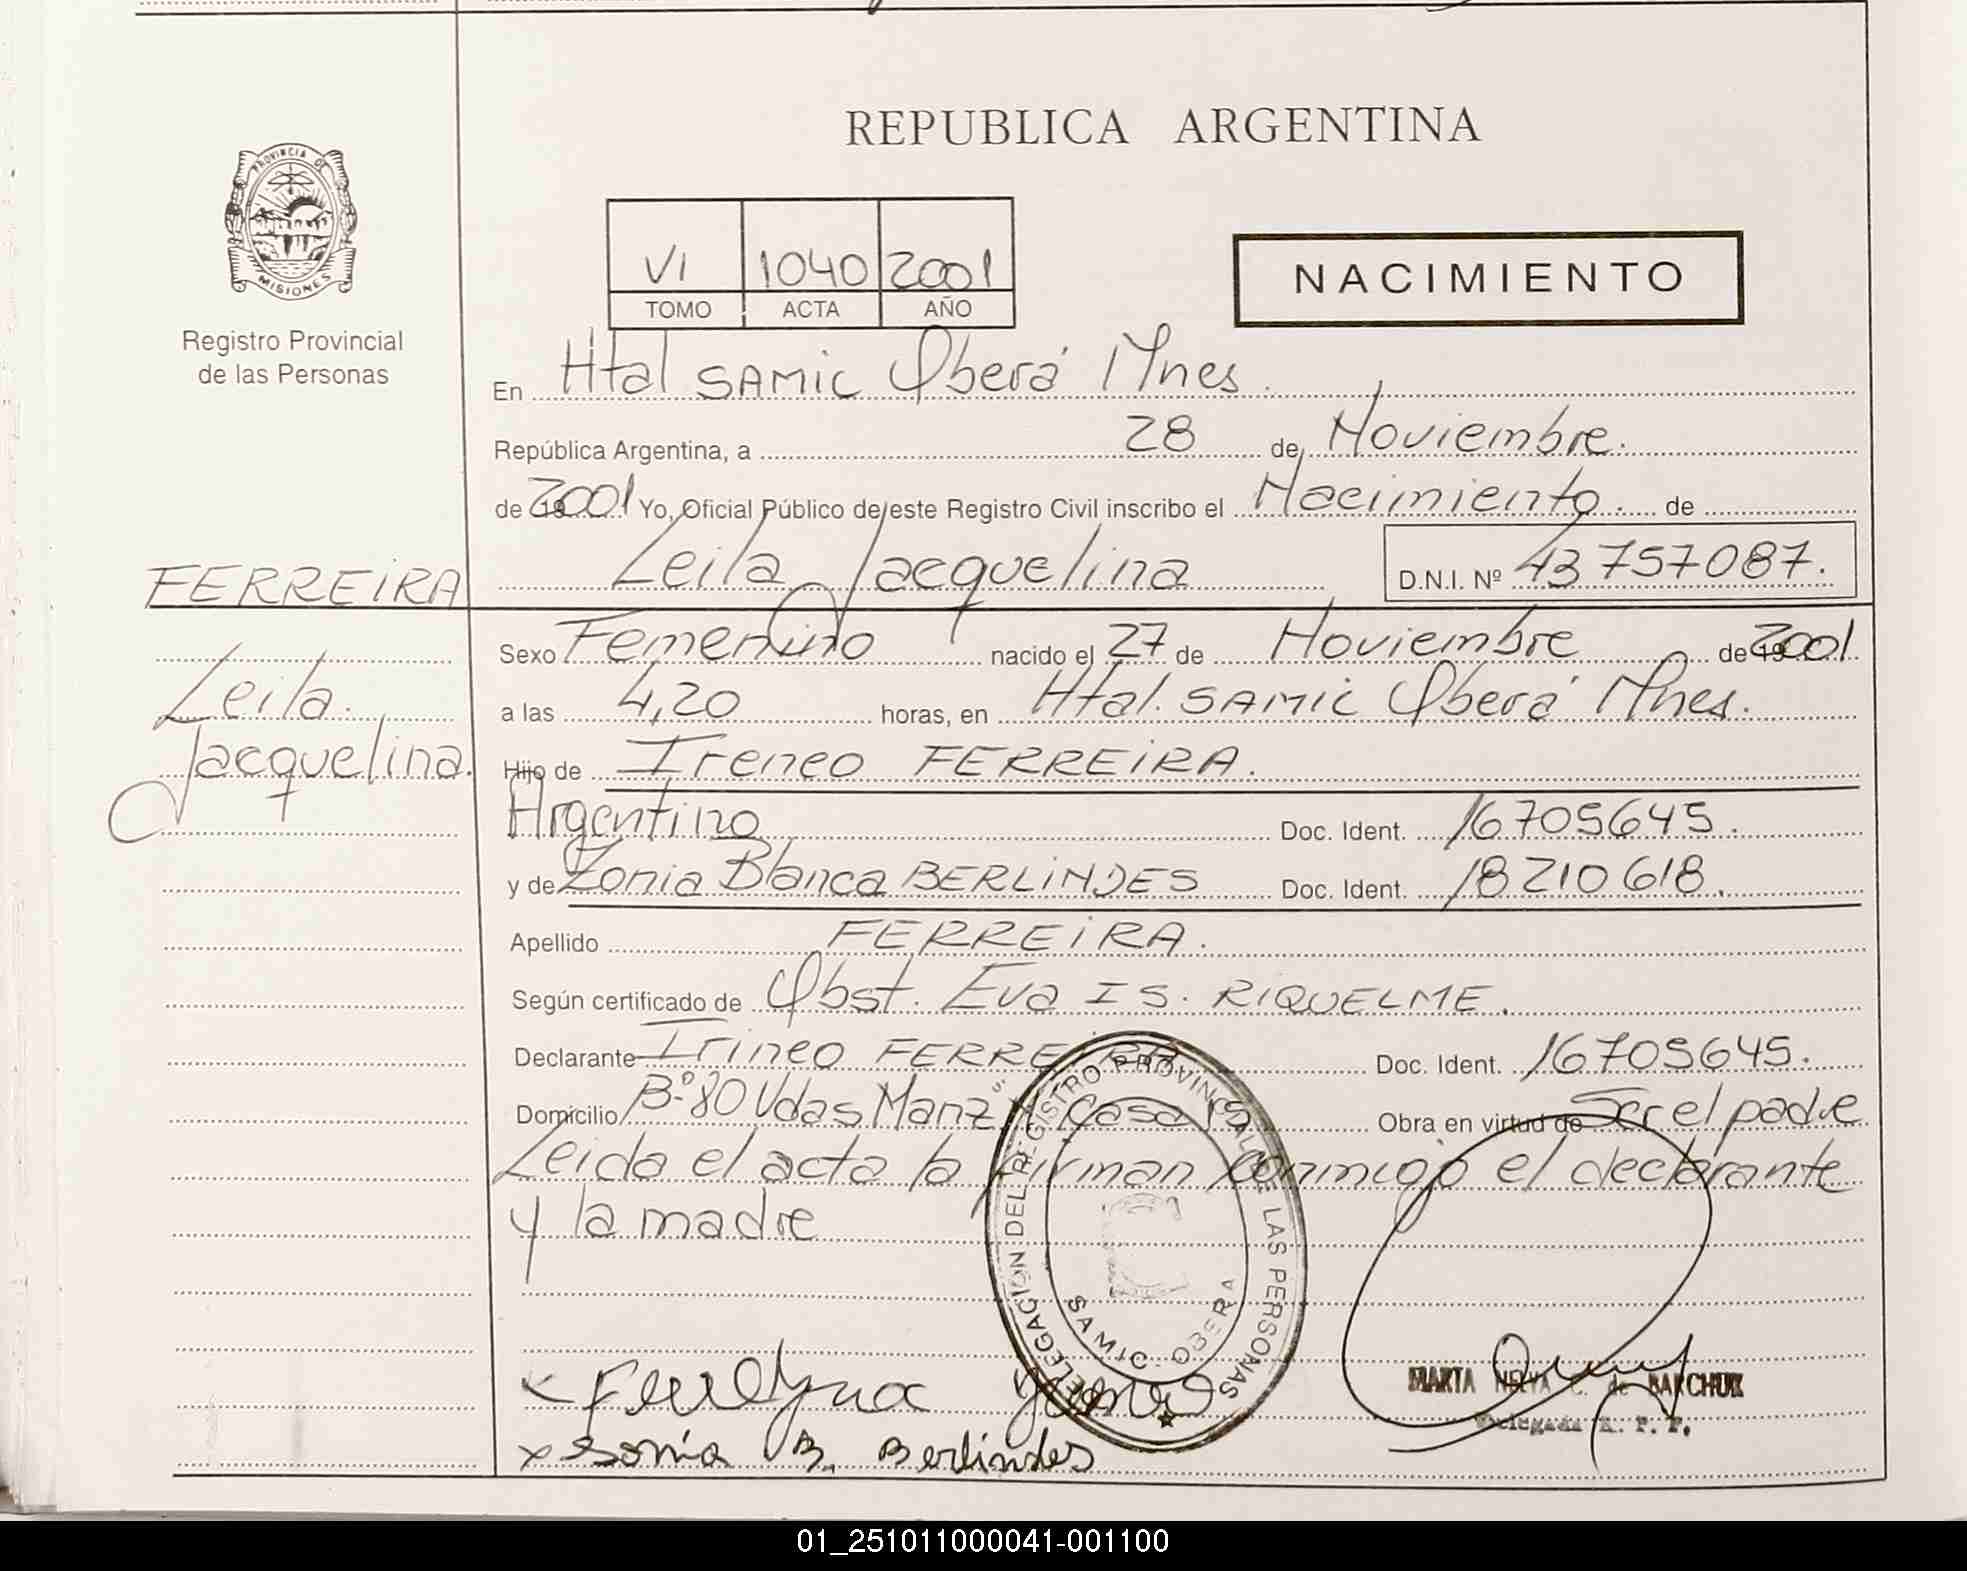 REPUBLICA ARGENTINA
PROVINCIA DE
MISIONES
Registro Provincial
de las Personas
VI 1040 2001
TOMO ACTA AÑO
NACIMIENTO
En Htal SAMIC Oberá Mnes.
República Argentina, a 28 de Noviembre.
de 2001 Yo, Oficial Público de este Registro Civil inscribo el Nacimiento. de
Leila Jacquelina D.N.I. Nº 43757087.
FERREIRA
Leila
Jacquelina.
Sexo Femenino nacido el 27 de Noviembre de 2001
a las 4,20 horas, en Htal. SAMIC Oberá Mnes.
Hijo de Ireneo FERREIRA.
Argentino Doc. Ident. 16705645.
y de Zonia Blanca BERLINDES Doc. Ident. 18210618.
Apellido FERREIRA.
Según certificado de Obst. Eva IS. RIQUELME.
Declarante Irineo FERREIRA Doc. Ident. 16705645.
Domicilio Bº 80 Vdas Manz Casa 15 Obra en virtud de Ser el padre
Leida el acta la firman conmigo el declarante
y la madre
DELEGACION DEL REGISTRO PROVINCIAL DE LAS PERSONAS
SAMIC OBERA
MARTA NELVA C. de BARCHUK
Delegada R. P. P.
x Sonia B. Berlindes
01_251011000041-001100